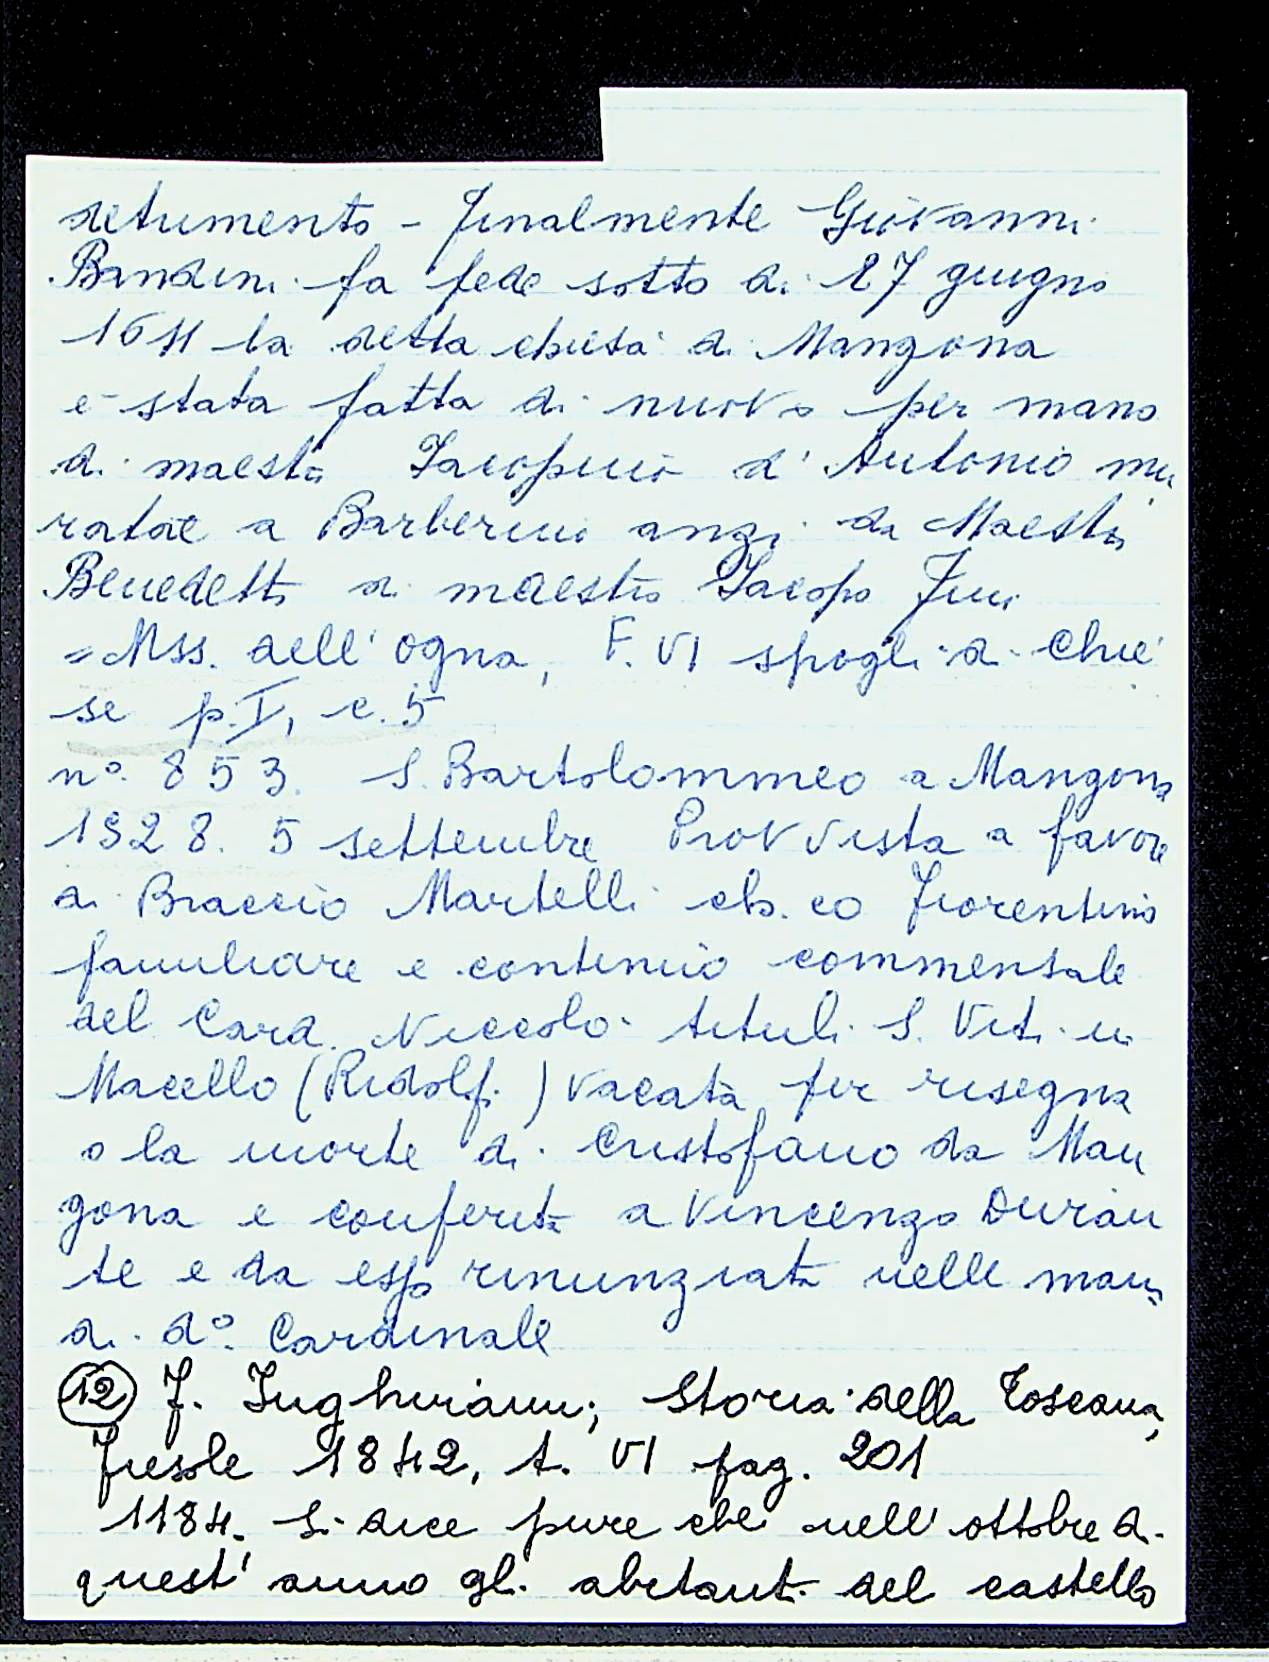 detrimento - Finalmente Giovanni
Bandini fa fede sotto di 27 giugno
1611 la detta chiesa di Mangona
è stata fatta di nuovo per mano
di maestro Iacopino d'Antonio mu
ratore a Barberino anzi da Maestro
Benedetto di maestro Iacopo Fini
= Mss. dell'Ogna, F. VI spogli di Chie
se p. I, c. 5
n°. 853. S. Bartolommeo a Mangona
1528. 5 settembre Provvista a favore
di Braccio Martelli ch.co Fiorentino
familiare e continuo commensale
del Card. Niccolò tituli S. Viti in
Macello (Ridolfi) vacata per risegna
o la morte di Cristofano da Man
gona e conferita a Vincenzo Duran
te e da esso rinunziata nelle mani
di d°. Cardinale
(12) F. Inghirami; Storia della Toscana,
Fiesole 1842, t. VI pag. 201
1184. Si dice pure che nell'ottobre di
quest'anno gli abitanti del castello